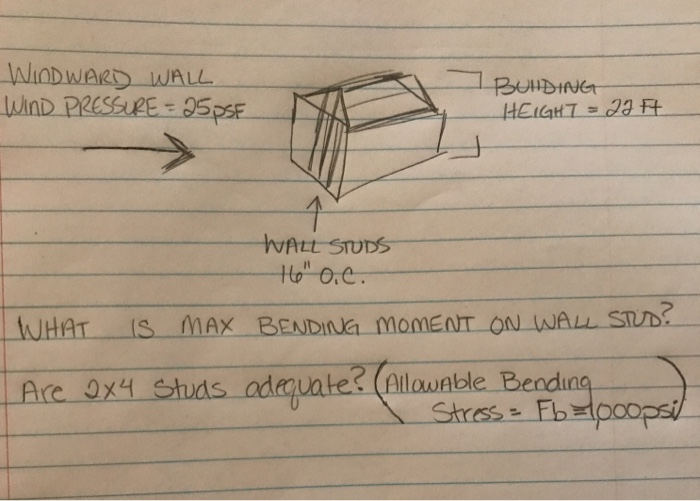 WINDWARD WALL
WIND PRESSURE = 25 PSF
BUIIDING
HEIGHT = 22 FT
WALL STUDS
16" O.C.
WHAT IS MAX BENDING MOMENT ON WALL STUD?
Are 2x4 studs adequate? (Allowable Bending
Stress = Fb = 1,000psi)